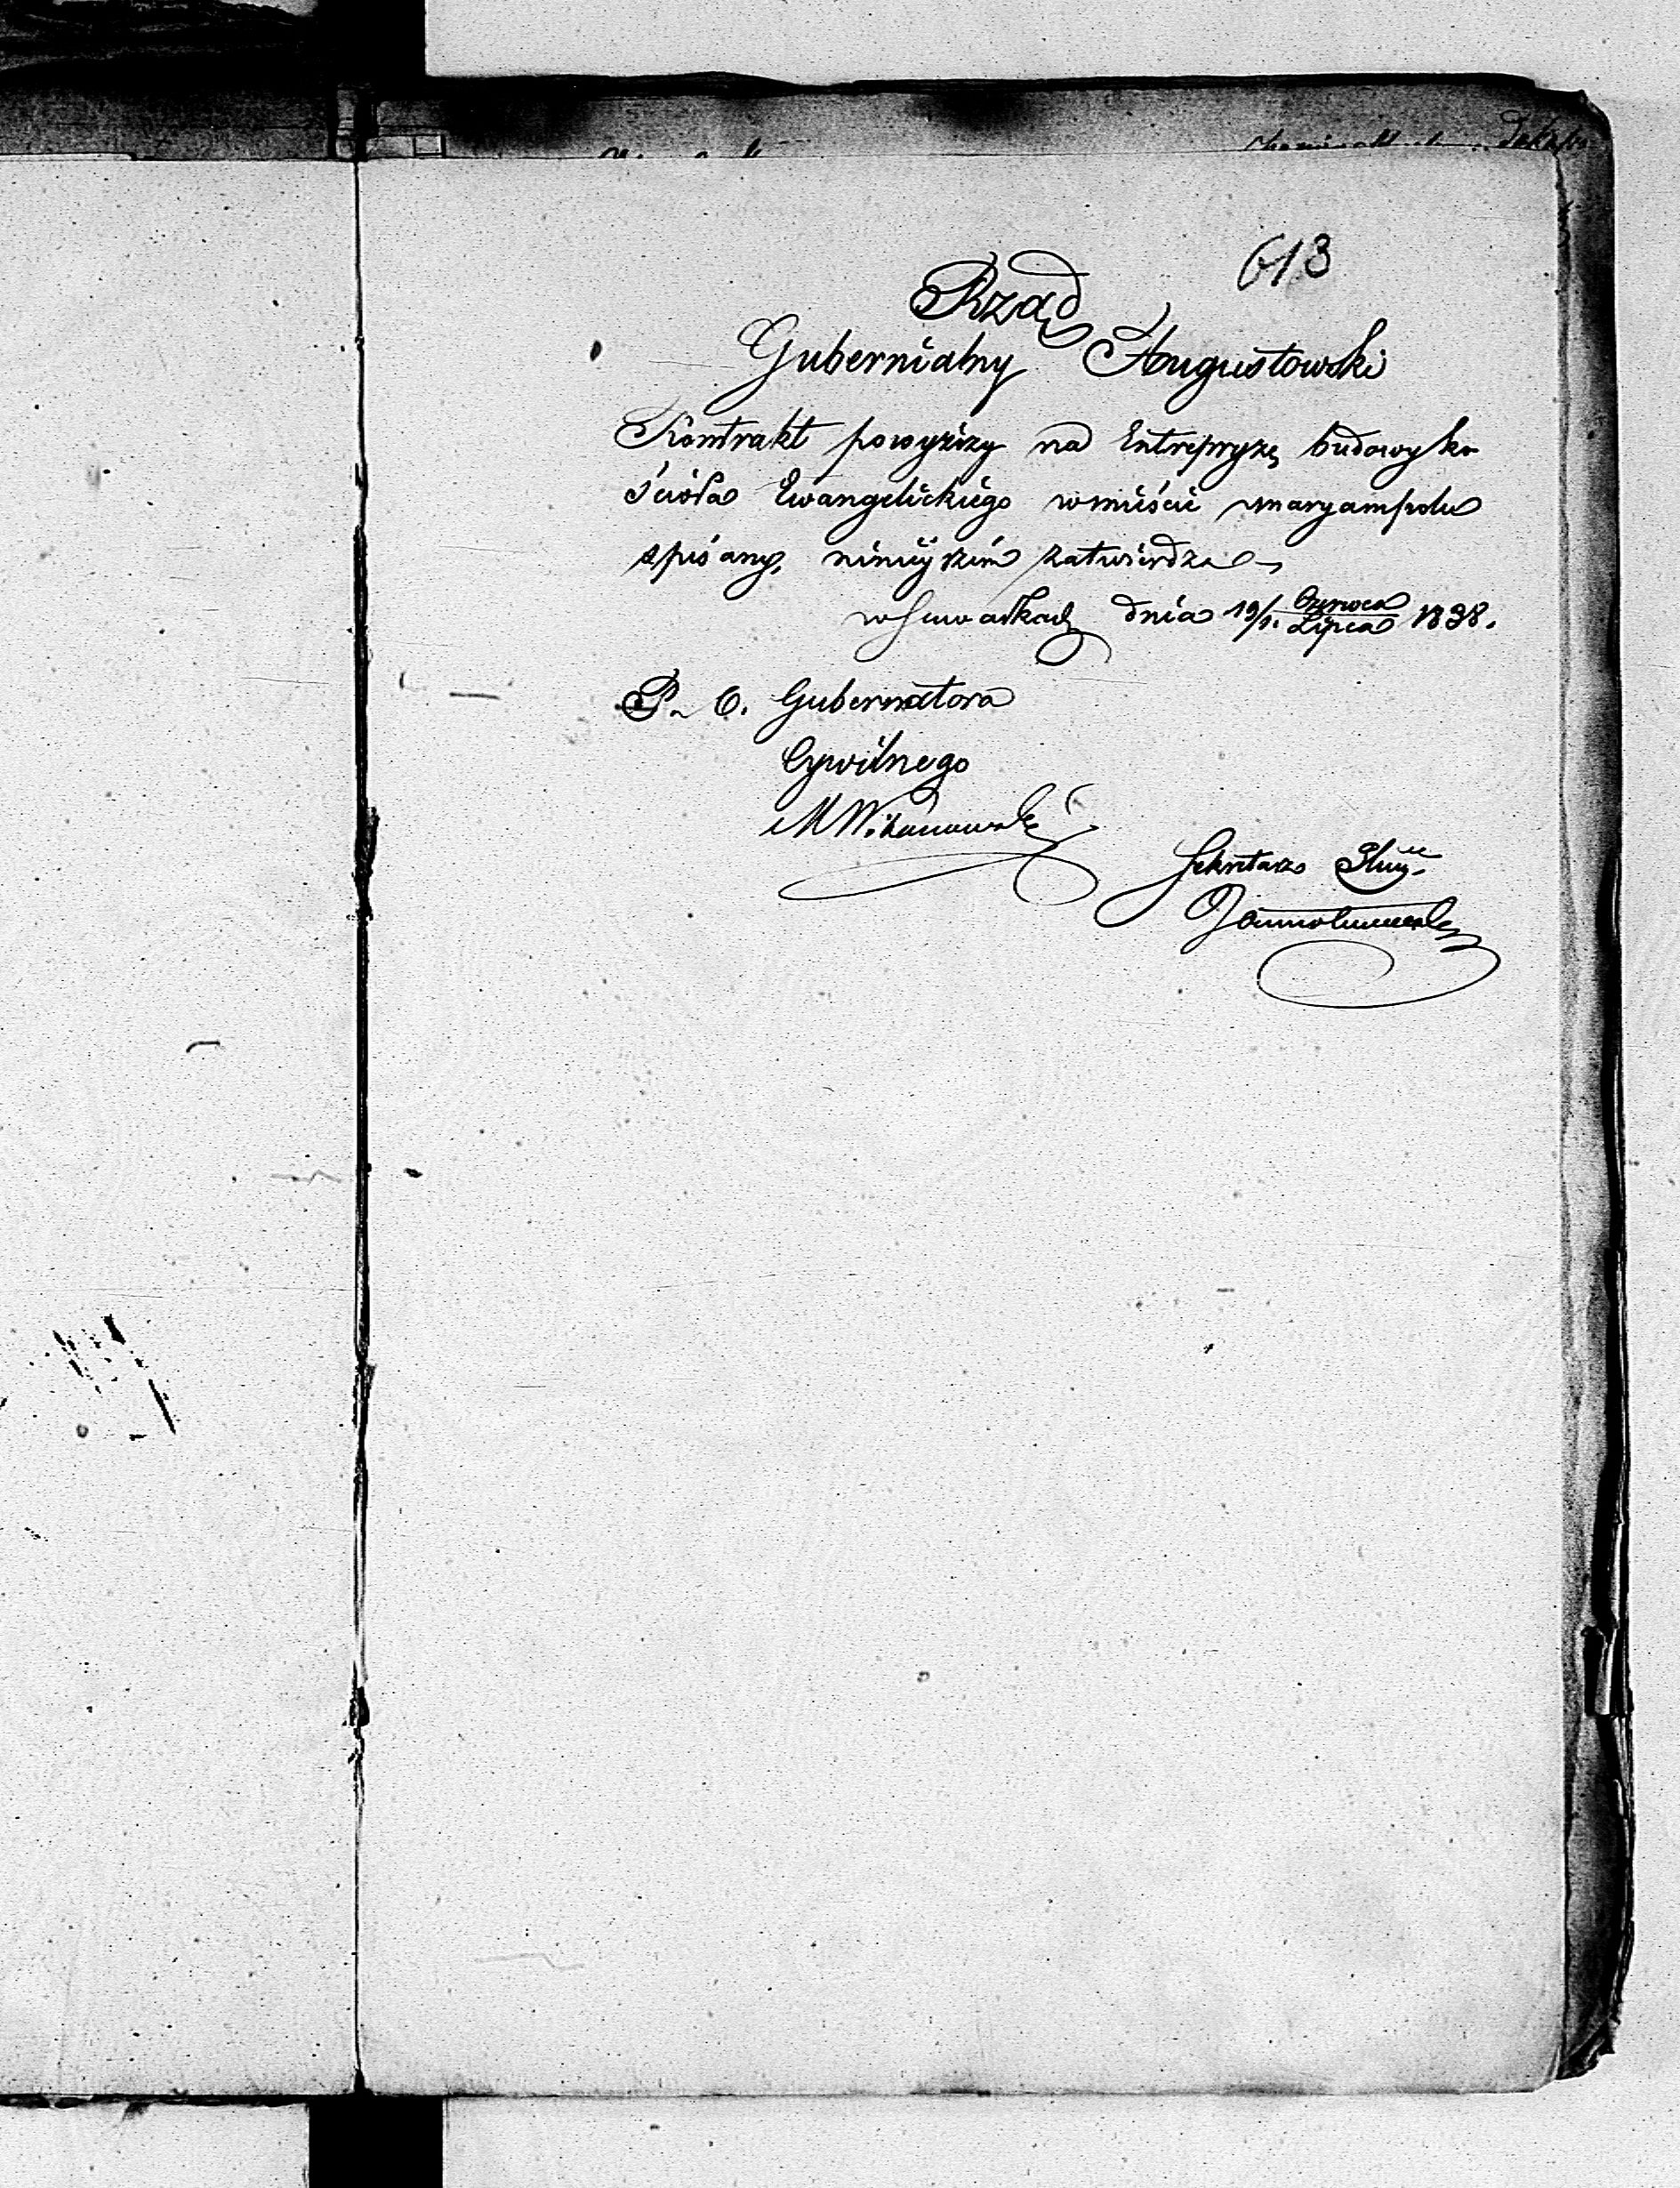 613
Rząd
Gubernialny Augustowski
Kontrakt powyższy na Entrepryzę budowy ko
ścioła Ewangelickiego w mieście Maryampolu
spisany, niniejszem zatwierdza
w Suwałkach dnia 19/1. Czerwca/Lipca 1838.
P. O. Gubernatora
Cywilnego
Sekretarz